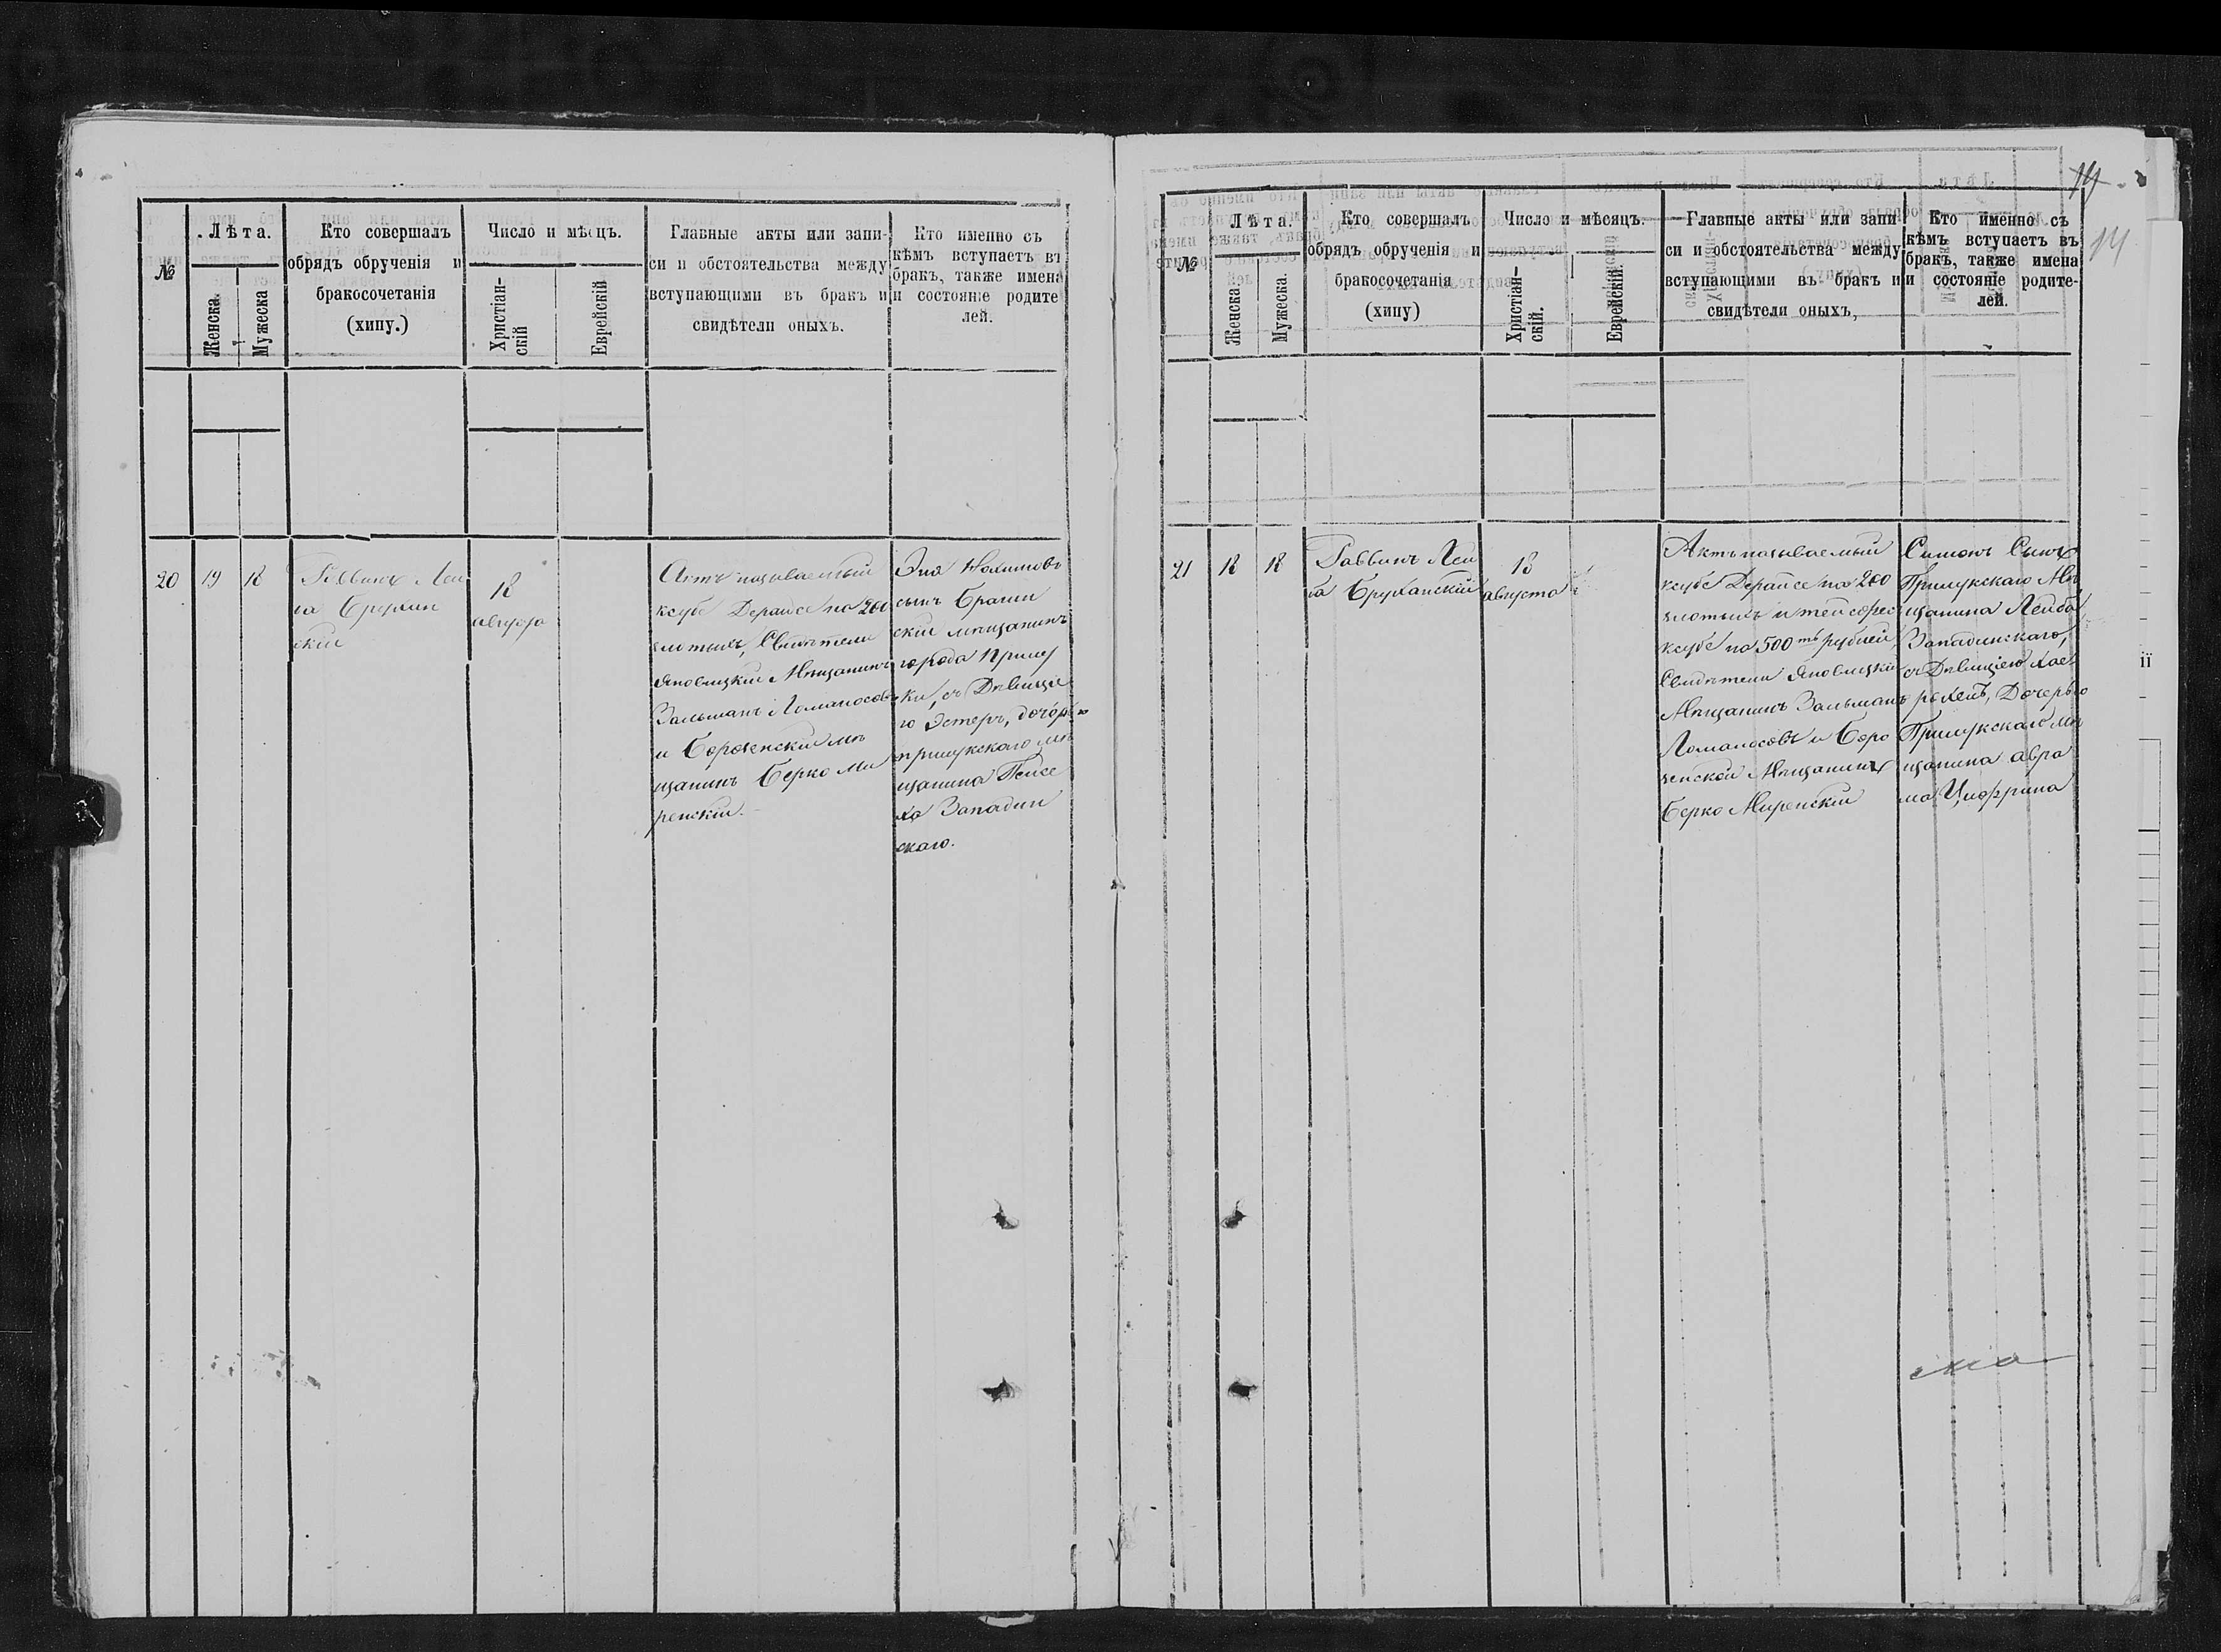 №
Лѣта.
Женска.
Мужеска
Кто совершалъ
обрядъ обрученія и
бракосочетанія
(хипу.)
Число и мѣсцъ.
Христіан-
скій
Еврейскій
Главные акты или запи-
си и обстоятельства между
вступающими въ бракъ и
свидѣтели оныхъ.
Кто именно съ
кѣмъ вступаетъ въ
бракъ, также имена
и состояніе родите
лей.
20
19
18
Раввинъ Лей
ба Брухан
скій
18
августа
Актъ называемый
ксубе Дерайсе на 200
злотыхъ, Свидѣтели
Яновицкій Мѣщанинъ
Зальманъ Ломаносовъ
и Борзенскій мѣ
щанинъ Берко Ми
ренскій.
сынъ Брагин
скій мѣщанинъ
города Прилу
ки, съ Дѣвице
ю Эстеръ, дочерью
прилукскаго мѣ
щанина Пейсе
ха Западин
скаго.
14
14
№
Лѣта.
Женска
Мужеска.
Кто совершалъ
обрядъ обрученія и
бракосочетанія
(хипу)
Число и мѣсяцъ.
Христіан-
скій.
Еврейскій.
Главные акты или запи-
си и обстоятельства между
вступающими въ бракъ и
свидѣтели оныхъ,
Кто именно съ
кѣмъ вступаетъ въ
бракъ, также имена
и состояніе родите-
лей.
21
18
18
Раввинъ Лей
ба Бруханскій
18
августа
Актъ называемый
ксубе Дерайсе на 200
злотыхъ и тейсфес
ксубе на 500тъ рублей,
Свидѣтели Яновицкій
Мѣщанинъ Зальманъ
Ломаносовъ и Борз
енской Мѣщанинъ
Берко Миренскій
Симонъ Сынъ
Прилукскаго Мѣ
щанина Лейба
Западинскаго,
съ Дѣвицею Хае
рохель, Дочерью
Прилукскаго мѣ
щанина авра
ма Цифрина